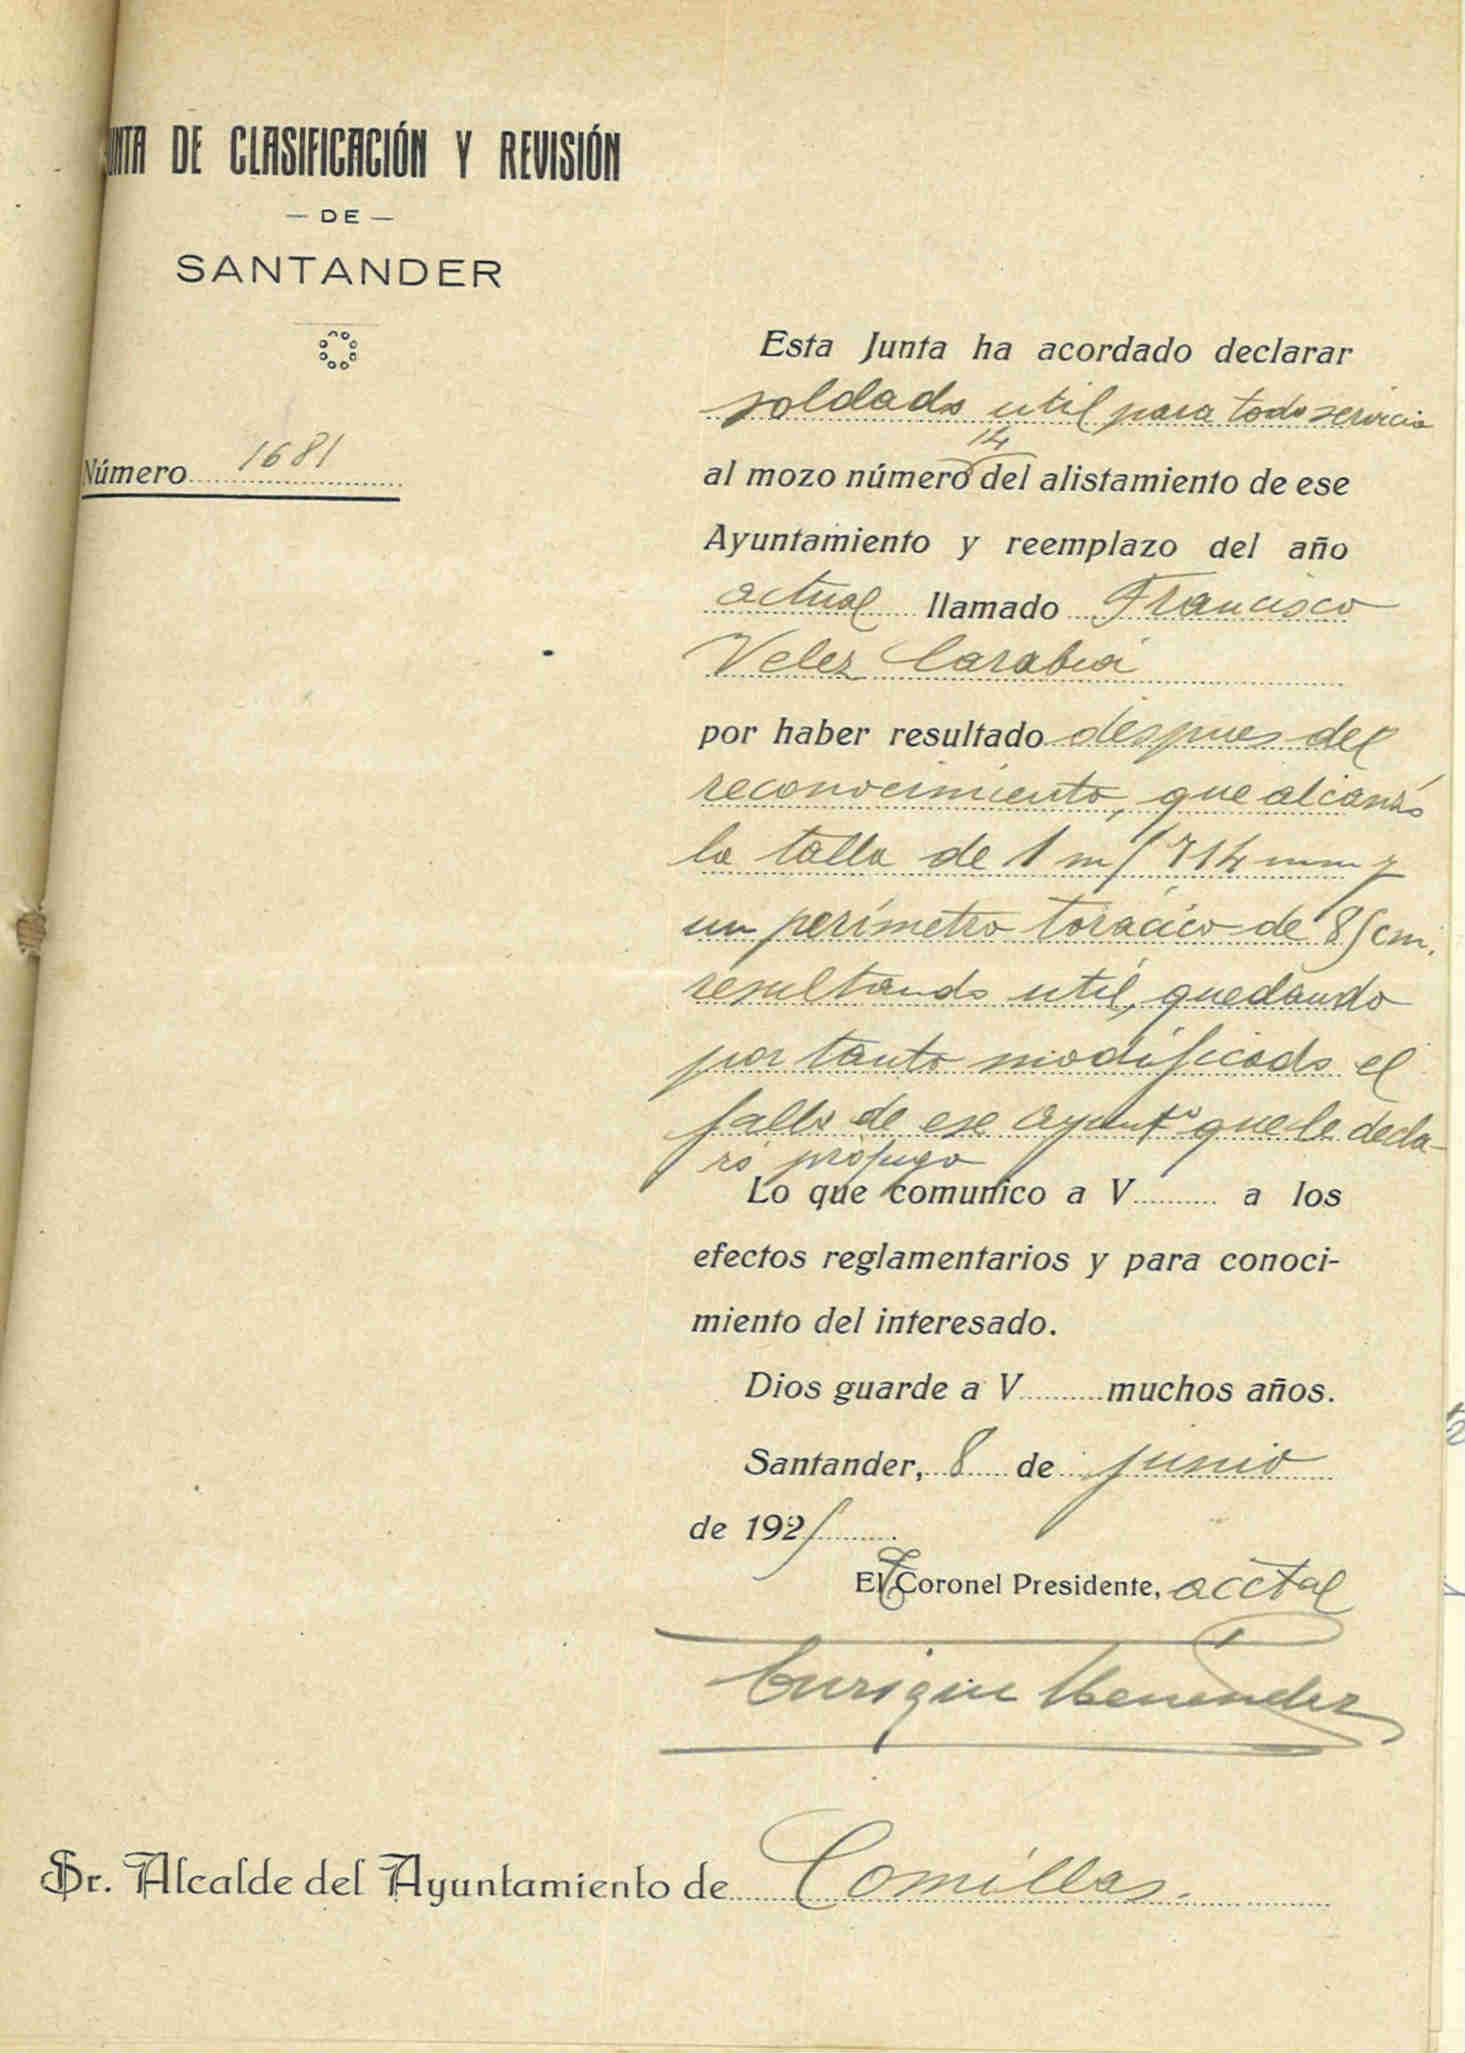 JUNTA DE CLASIFICACIÓN Y REVISIÓN
— DE —
SANTANDER
Número 1681
Esta Junta ha acordado declarar
soldado util para todo servicio
14
al mozo número del alistamiento de ese
Ayuntamiento y reemplazo del año
actual llamado Francisco
Velez Carabia
por haber resultado despues del
reconocimiento, que alcanzó
la talla de 1 m/ 714 mm y
un perímetro torácico de 85 cm.
resultando util, quedando
por tanto modificado el
fallo de ese Ayuntº que le decla-
ró prófugo
Lo que comunico a V. a los
efectos reglamentarios y para conoci-
miento del interesado.
Dios guarde a V. muchos años.
Santander, 8 de junio
de 1925
El Coronel Presidente, acctal
Enrique Menendez
Sr. Alcalde del Ayuntamiento de Comillas.